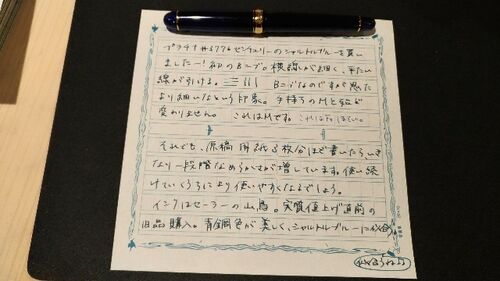 プラチナ#3776センチュリーのシャルトルブルーを買い
ましたー！初のBニブ。横線が細く、平たい
線が引ける。 Bニブなのですが思った
より細いなという印象。手持ちのMと幅が
変わりません。 これはMです。これは
それでも、原稿用紙3枚分ほど書いたらいき
なり一段階なめらかさが増しています。使い続
けていくうちにより使いやすくなるでしょう。
インクはセーラーの山鳥。実質値上げ直前の
旧品購入。青銅色が美しく、シャルトルブルーに似合